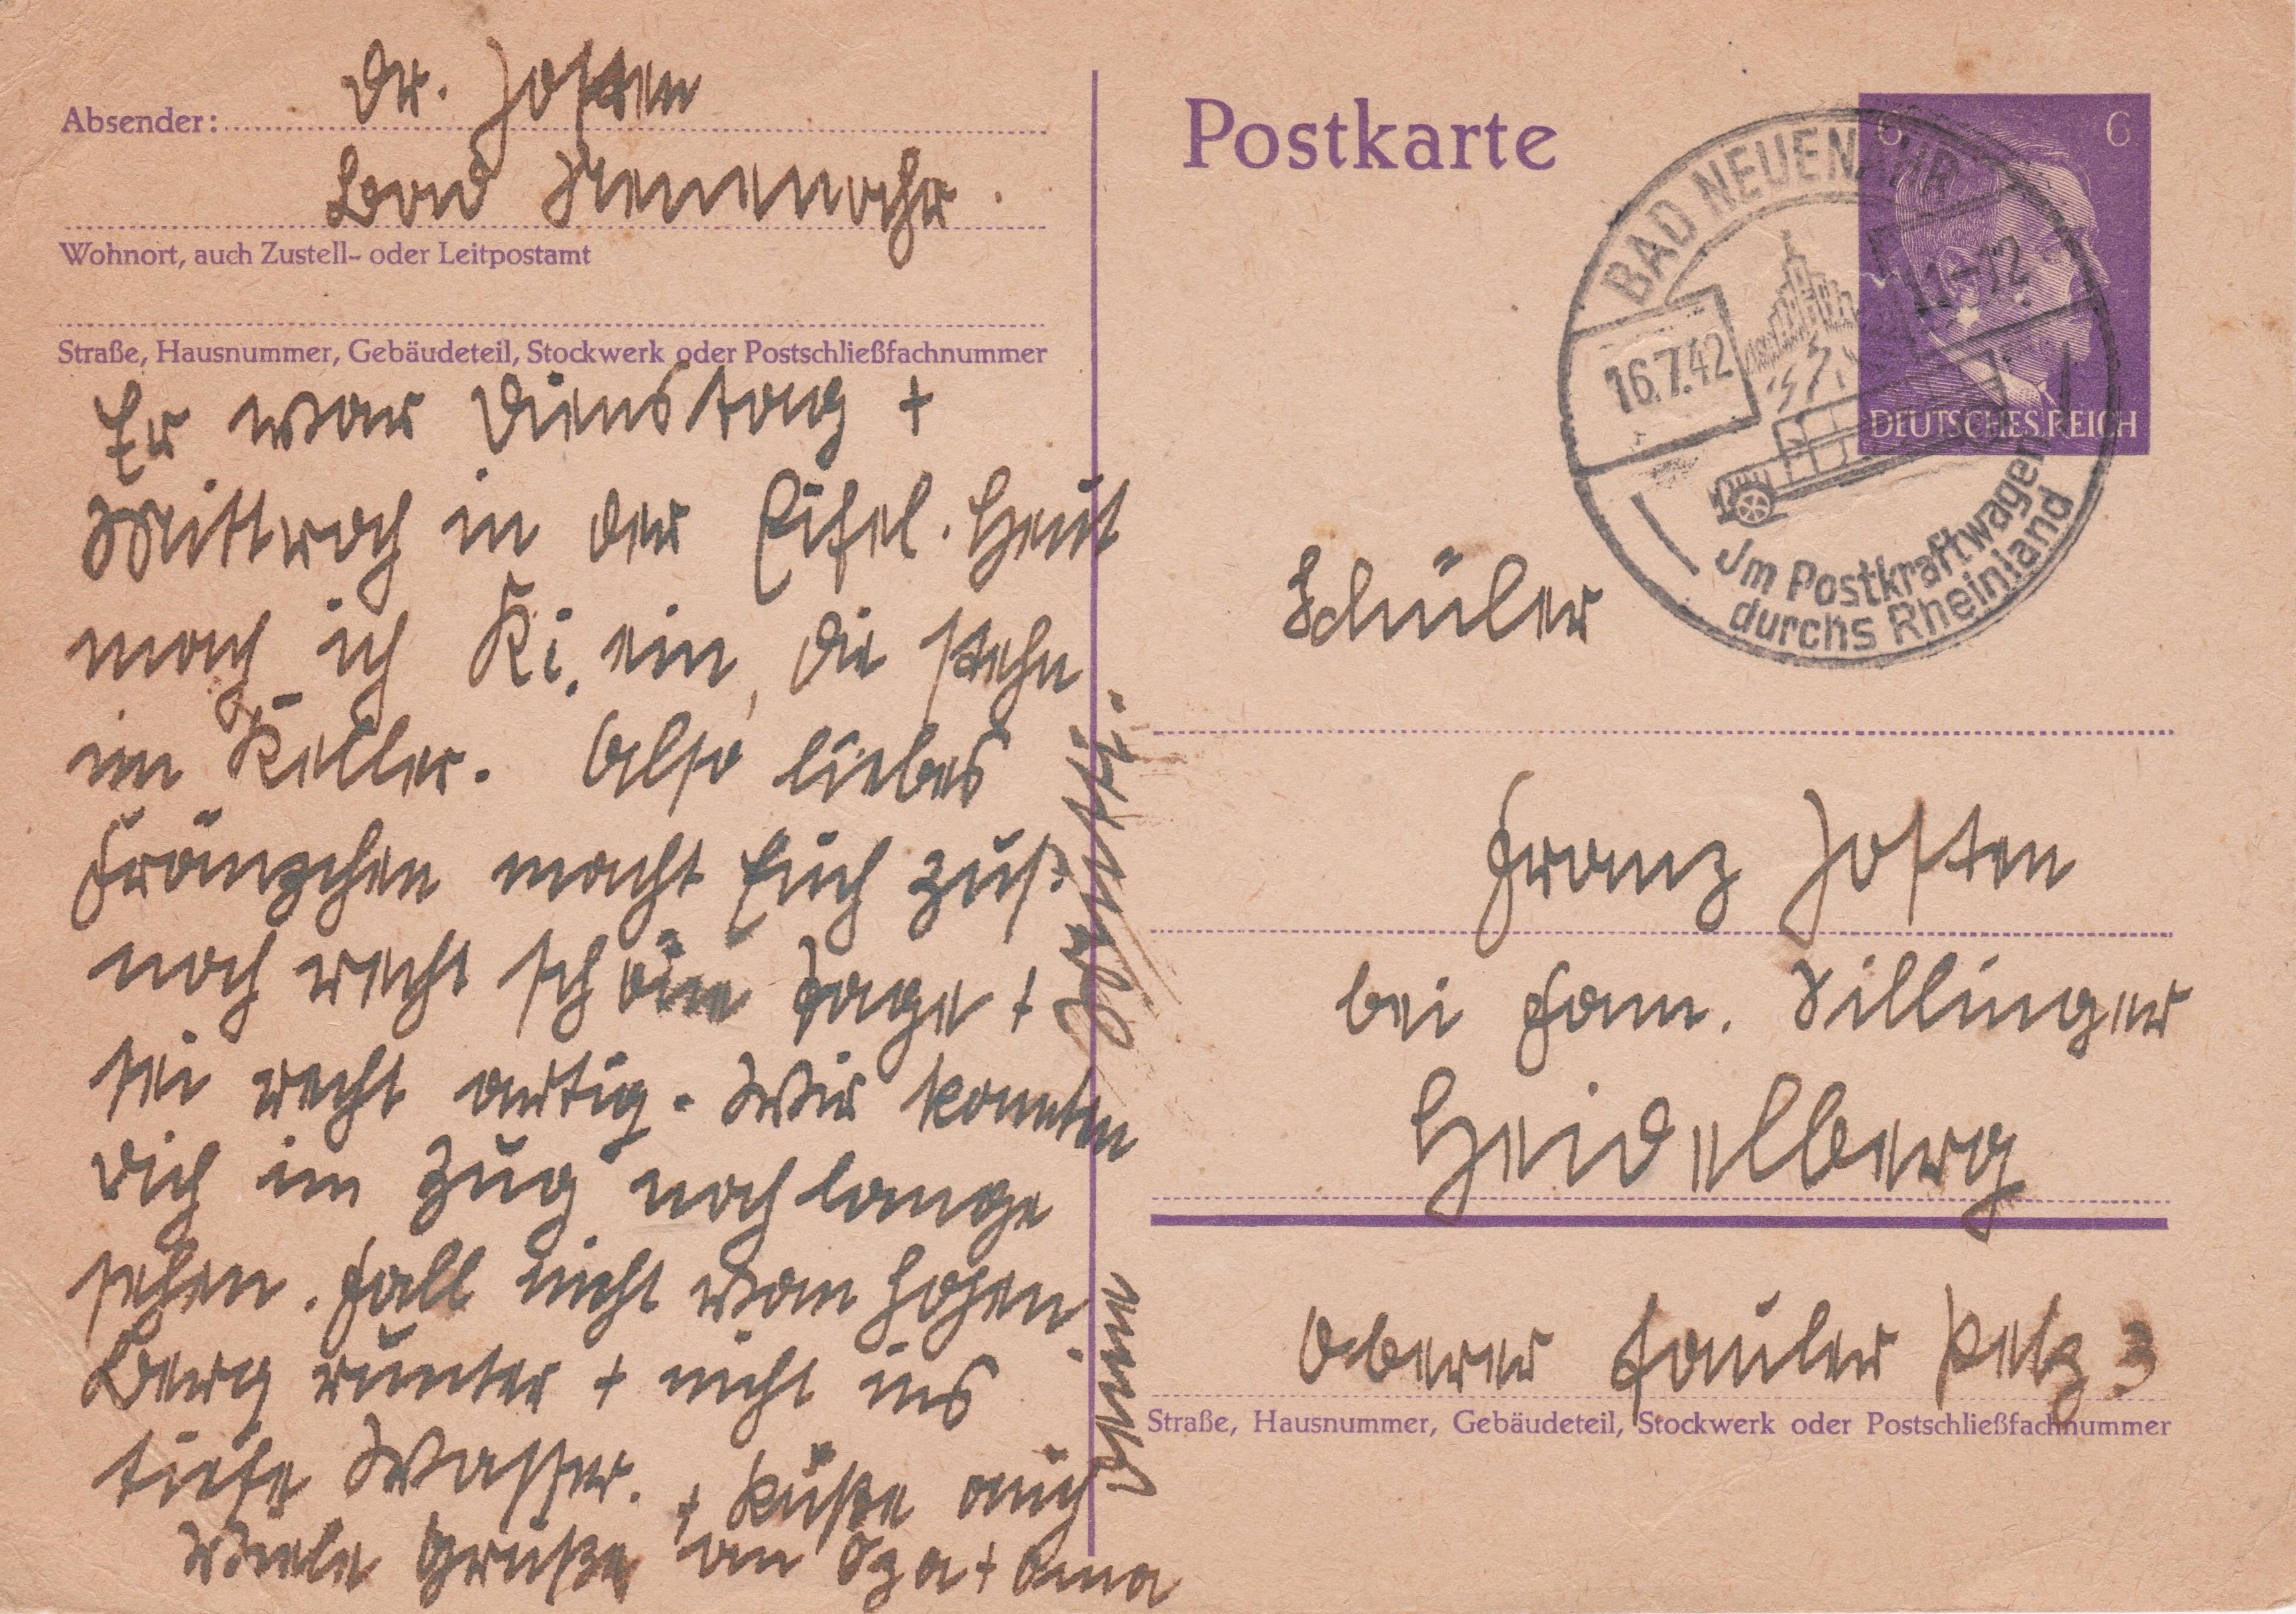 Absender: Dr. Josten
Bad Neuenahr.
Wohnort, auch Zustell- oder Leitpostamt
Straße, Hausnummer, Gebäudeteil, Stockwerk oder Postschließfachnummer
Er war Dienstag +
Mittwoch in der Eifel. Heut
mach ich Ki. ein, die stehn
im Keller. Also liebes
Fränzchen macht Euch zus.
noch recht schöne Tage +
sei recht artig. Wir konnten
Dich im Zug noch lange
sehen. Fall nicht vom hohen
Berg runter + nicht ins
tiefe Wasser.
+ Küße auch
Viele Grüße an Opa + Oma
Deine
Postkarte
6 6
DEUTSCHES REICH
BAD NEUENAHR
16.7.42
11-12
Im Postkraftwagen
durchs Rheinland
Schüler
Franz Josten
bei Fam. Sillinger
Heidelberg
Oberer Fauler Pelz 3
Straße, Hausnummer, Gebäudeteil, Stockwerk oder Postschließfachnummer